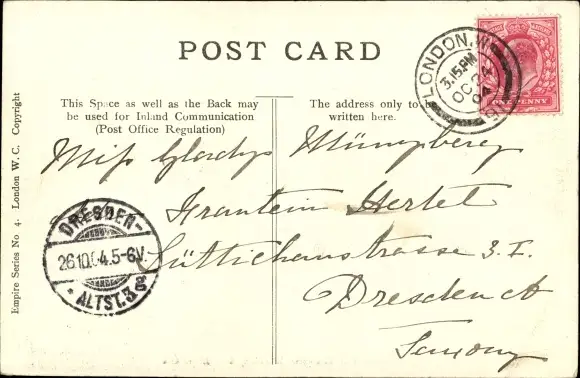 POST CARD
LONDON.W.
3.15.PM
OC 24
04
ONE PENNY
This Space as well as the Back may
be used for Inland Communication
(Post Office Regulation)
The address only to be
written here.
Empire Series No 4. London W. C. Copyright
Miss Gladys Münzberg
Fräulein Hertel
Lüttichaustrasse 3. I.
Dresden A
Saxony
DRESDEN-
26.10.04.5-6V.
* ALTST.3 g